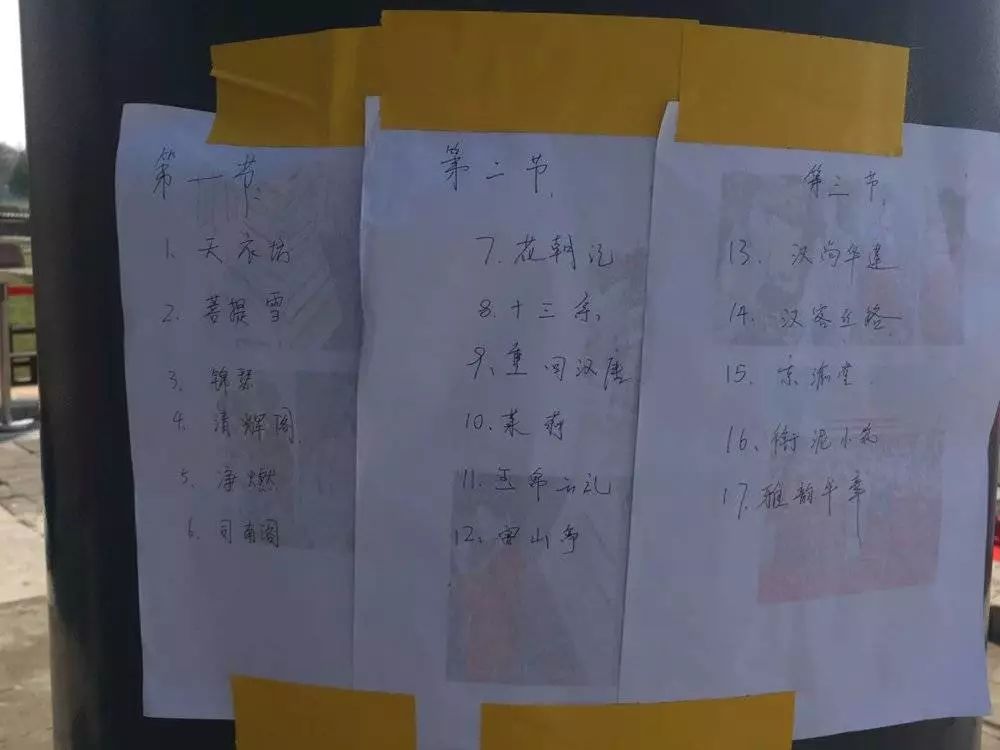 第一节.
1. 天衣坊
2. 菩提雪
3. 锦瑟
4. 清辉阁
5. 净燃
6. 司南阁
第二节.
7. 花朝记
8. 十三余
9、重回汉唐
10. 莱莳
11. 玉帛云礼
12、
第三节.
13. 汉尚华莲
14. 汉客丝路
15. 京渝堂
16、衔泥小筑
17. 雅韵华章